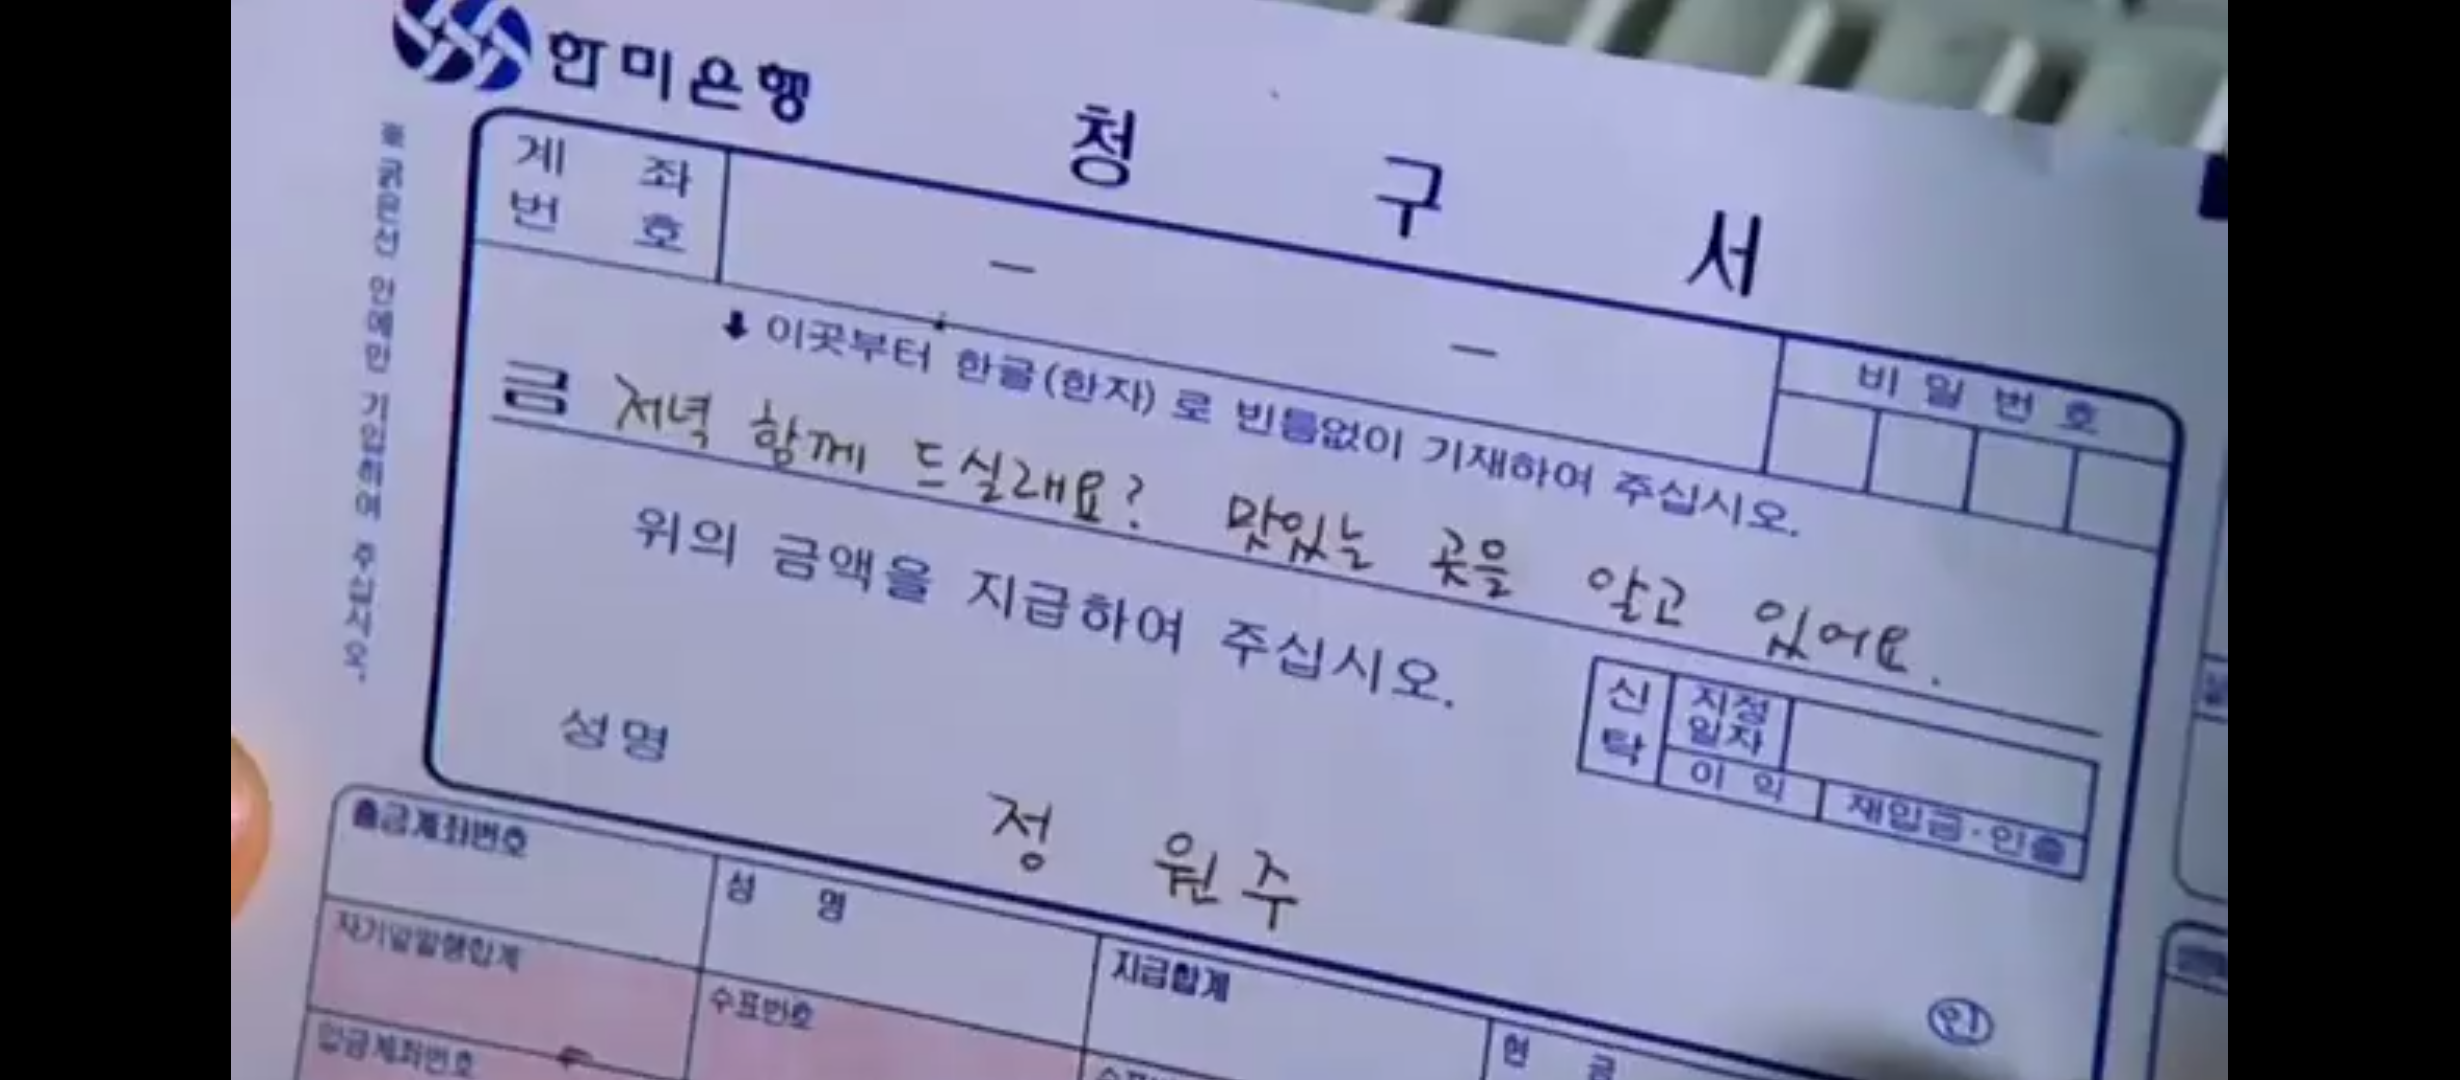 한미은행
청 구 서
계 좌
번 호
－ －
비 밀 번 호
※굵은선 안에만 기입하여 주십시오.
↓ 이곳부터 한글(한자)로 빈틈없이 기재하여 주십시오.
금 저녁 함께 드실래요? 맛있는 곳을 알고 있어요.
위의 금액을 지급하여 주십시오.
신탁
지정일자
이 익
재입금·인출
성명
정 원주
인
출금계좌번호
성 명
지급합계
현 금
자기앞발행합계
수표번호
입금계좌번호